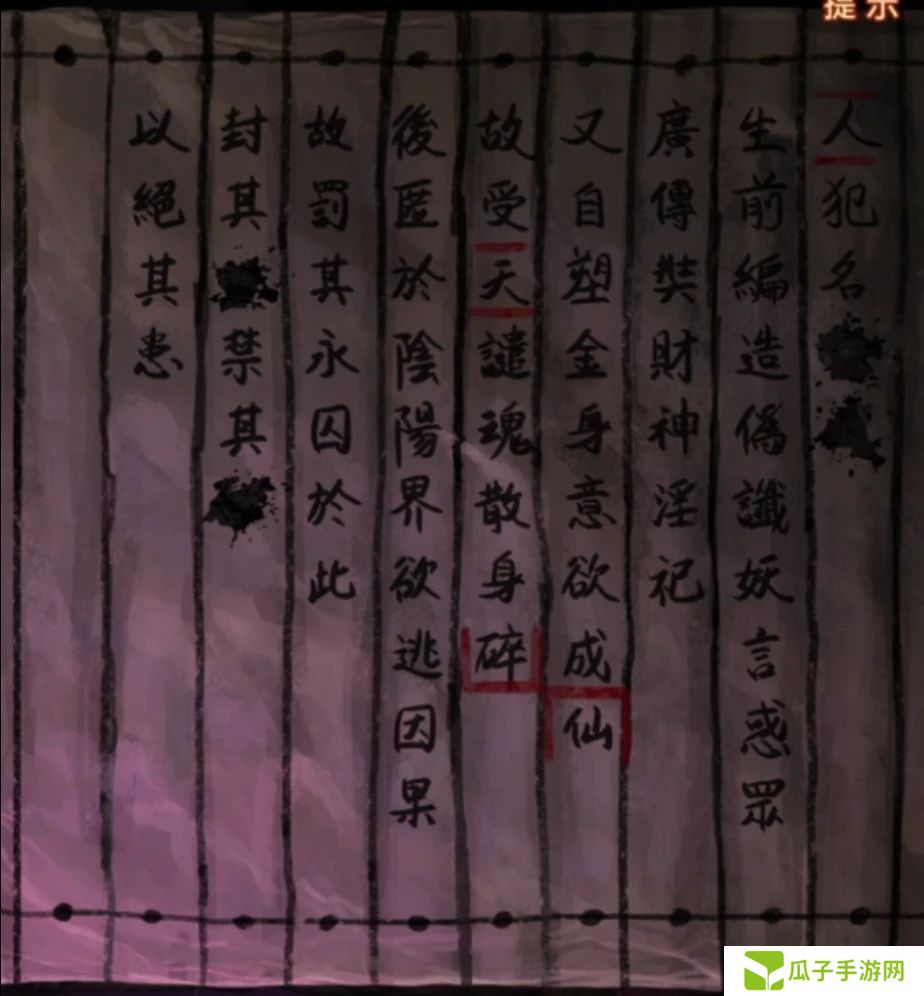 提示
人犯名
生前編造偽讖妖言惑眾
廣傳奘財神淫祀
又自塑金身意欲成仙
故受天譴魂散身碎
後匿於陰陽界欲逃因果
故罰其永囚於此
封其禁其
以絕其患
瓜子手游网